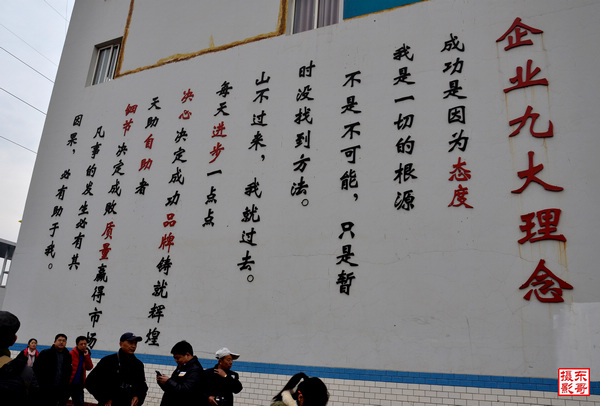 企业九大理念
成功是因为态度
我是一切的根源
不是不可能，只是暂
时没找到方法。
山不过来，我就过去。
每天进步一点点
决心决定成功品牌铸就辉煌
天助自助者
细节决定成败质量赢得市场
凡事的发生必有其
因果，必有助于我。
东哥
摄影